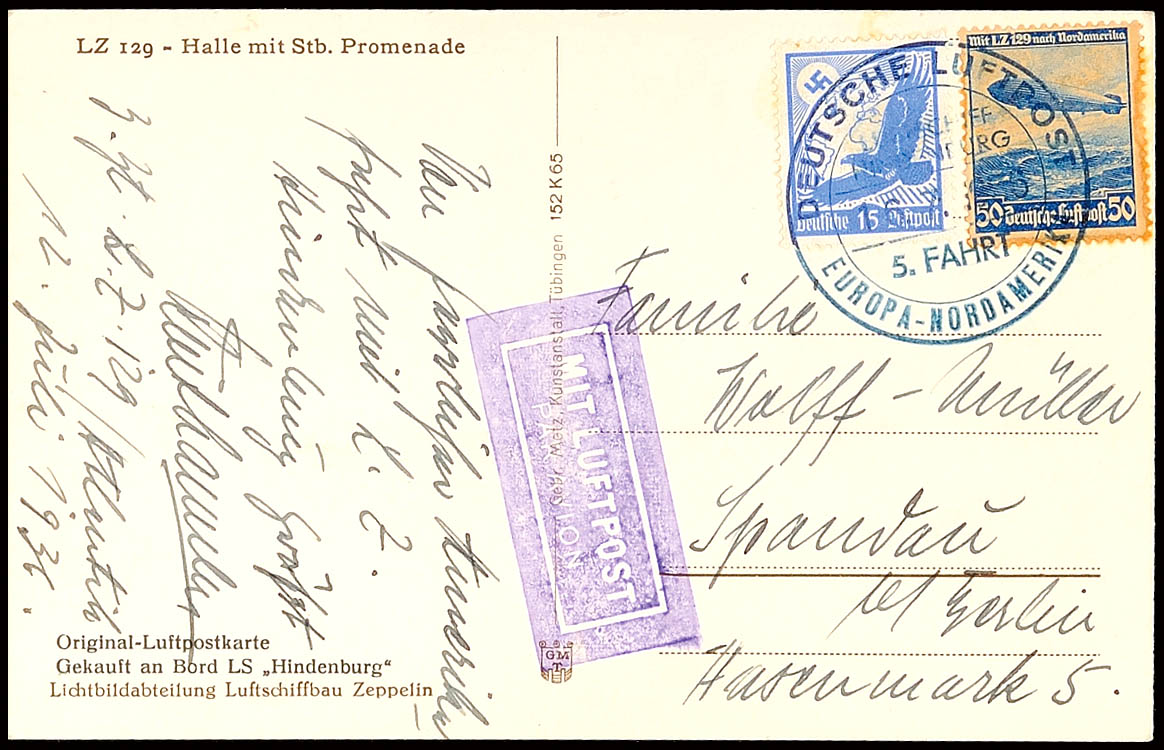 LZ 129 - Halle mit Stb. Promenade
Von
fahrt mit L. Z.
Hindenburg grüßt
z. Zt. L.Z. 129 / Atlantik
12. Juli 1936.
Original-Luftpostkarte
Gekauft an Bord LS „Hindenburg“
Lichtbildabteilung Luftschiffbau Zeppelin
Gebr. Metz, Kunstanstalt, Tübingen 152 K 65
MIT LUFTPOST
PAR AVION
GM
T
Deutsche 15 Luftpost
Mit LZ 129 nach Nordamerika
50 Deutsche Luftpost 50
DEUTSCHE LUFTPOST
5. FAHRT
EUROPA-NORDAMERIKA
Familie
Wolff-Müller
Spandau
Berlin
Hasenmark 5.